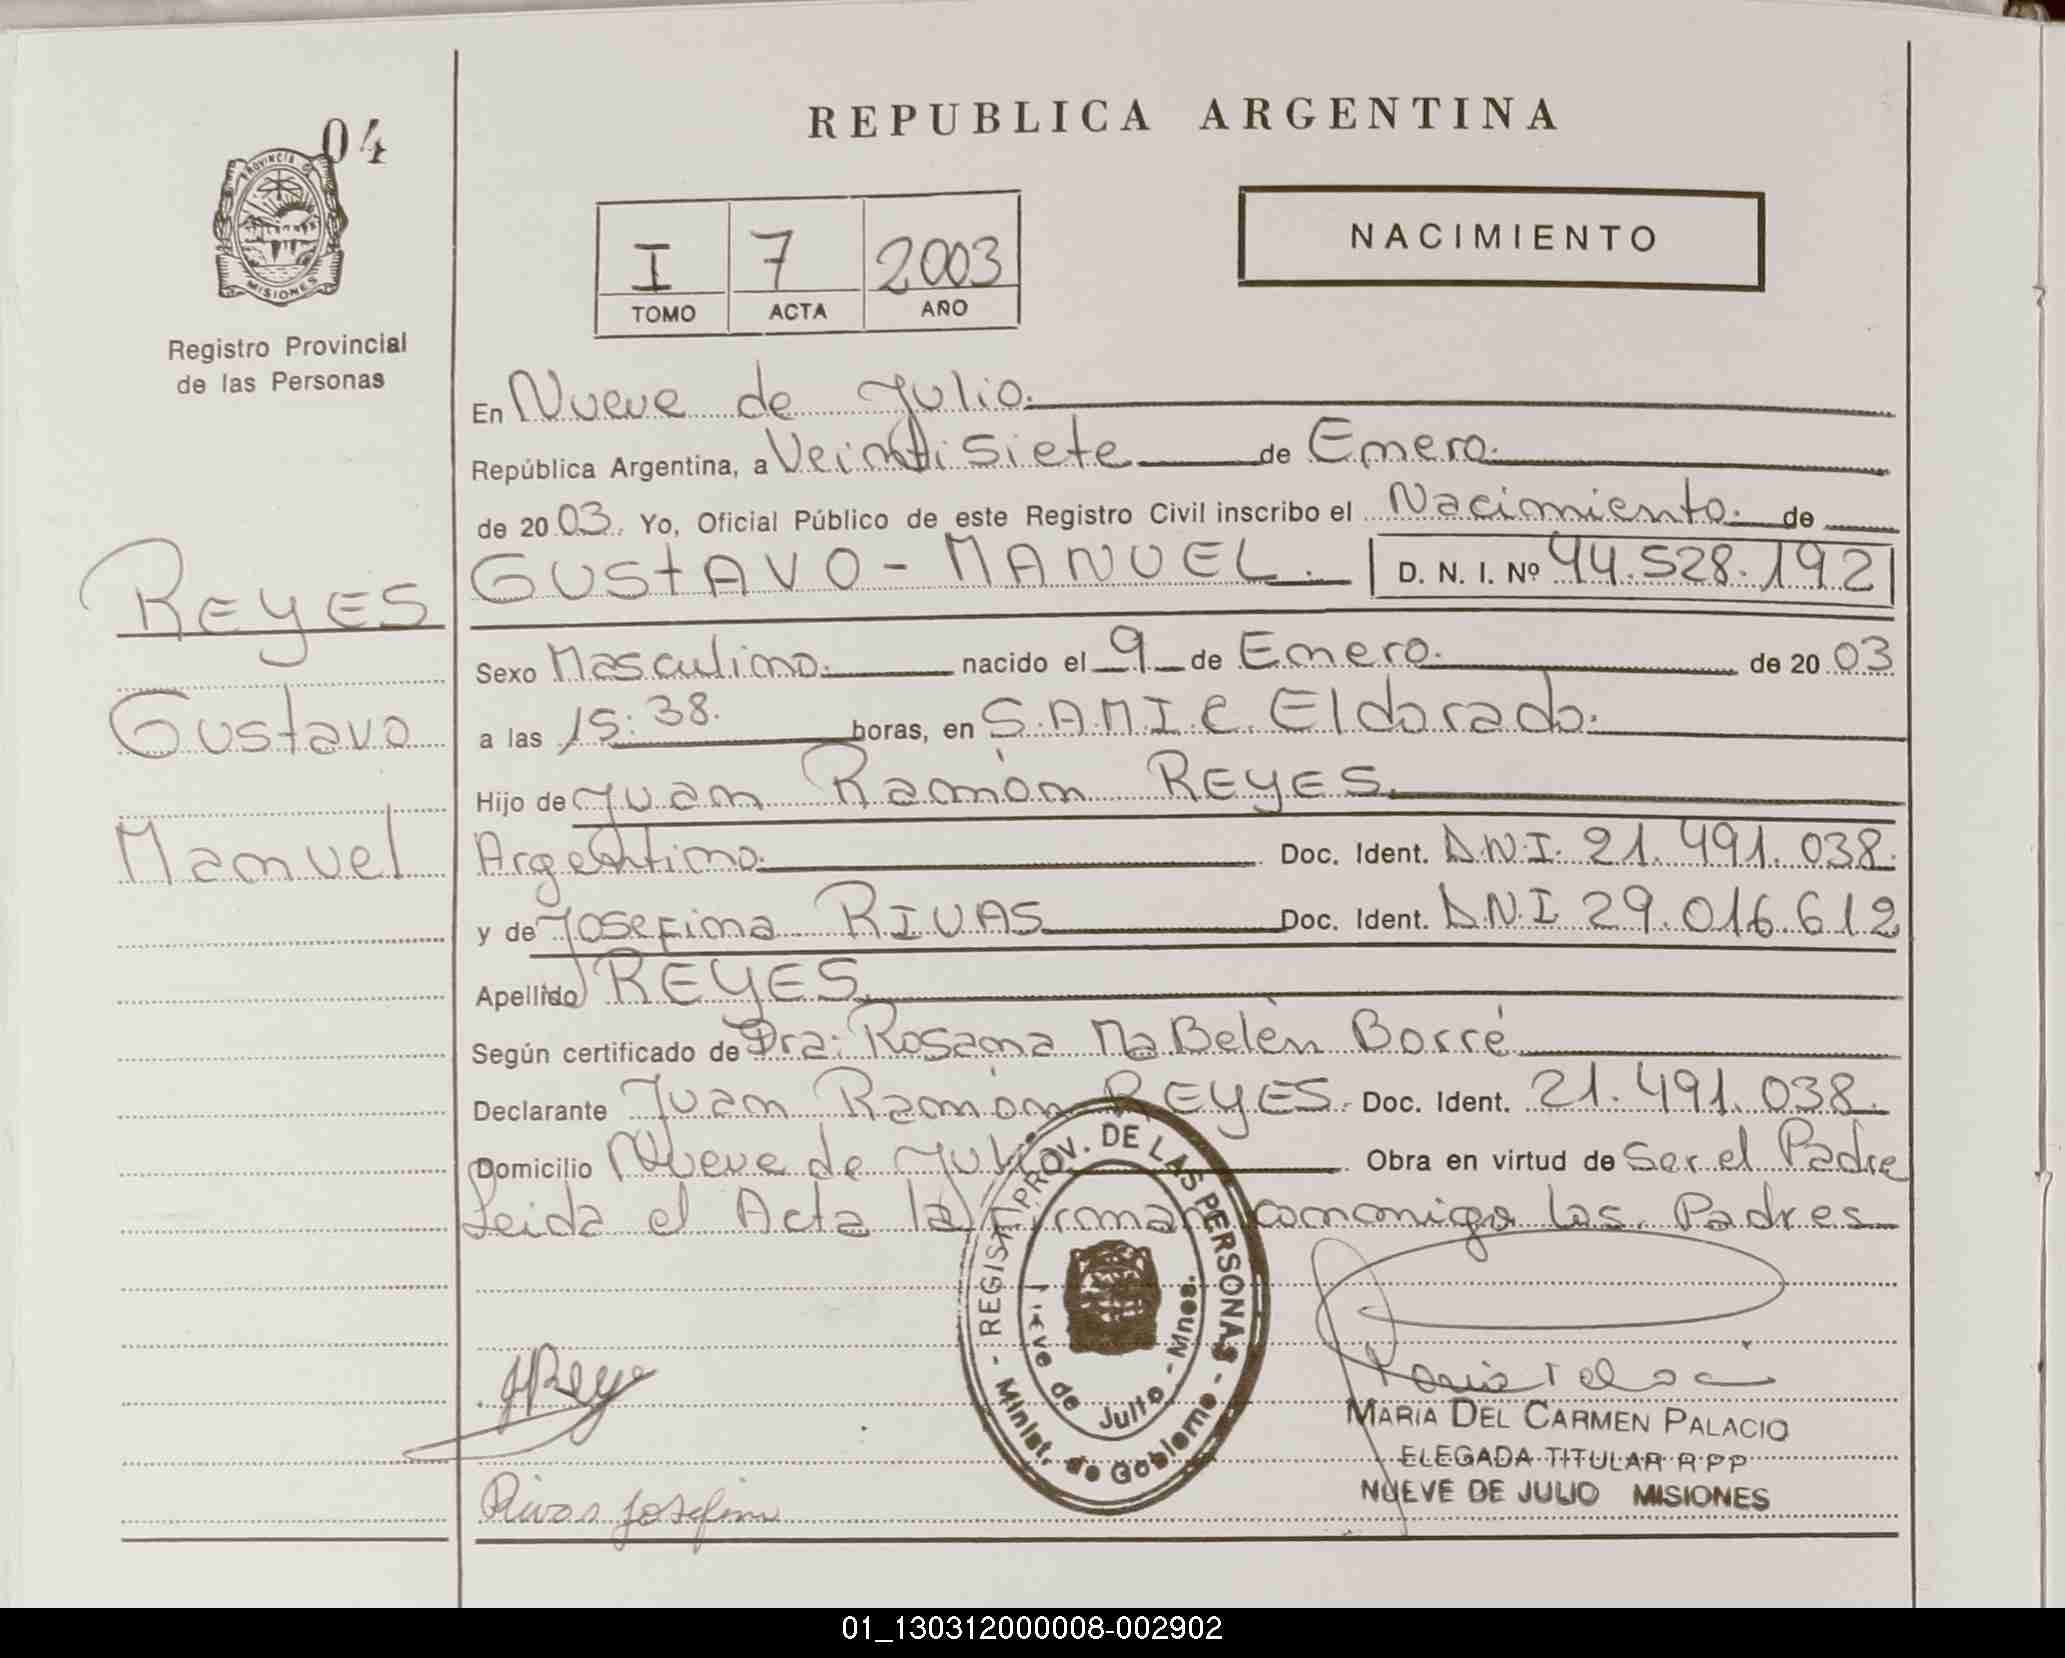 04
PROVINCIA DE
MISIONES
Registro Provincial
de las Personas
REPUBLICA ARGENTINA
I 7 2003
TOMO ACTA AÑO
NACIMIENTO
En Nueve de Julio.
República Argentina, a Veintisiete de Enero.
de 20 03. Yo, Oficial Público de este Registro Civil inscribo el Nacimiento. de
GUSTAVO - MANUEL. D. N. I. Nº 44.528.192
REYES
Gustavo
Manuel
Sexo Masculino. nacido el 9 de Enero. de 20 03
a las 15:38. horas, en S.A.M.I.C. Eldorado.
Hijo de Juan Ramón REYES
Argentino. Doc. Ident. D.N.I. 21.491.038.
y de Josefina RIVAS Doc. Ident. D.N.I 29.016.612
Apellido REYES
Según certificado de Dra: Rosana Ma Belén Borré
Declarante Juan Ramón REYES. Doc. Ident. 21.491.038.
Domicilio Nueve de Julio Obra en virtud de Ser el Padre
Leida el Acta la firman conmigo los Padres
- REGIST. PROV. DE LAS PERSONAS -
Minist. de Gobierno
Nueve de Julio - Mnes.
JReye
Rivas Josefina
MARIA DEL CARMEN PALACIO
ELEGADA TITULAR R P P
NUEVE DE JULIO MISIONES
01_130312000008-002902